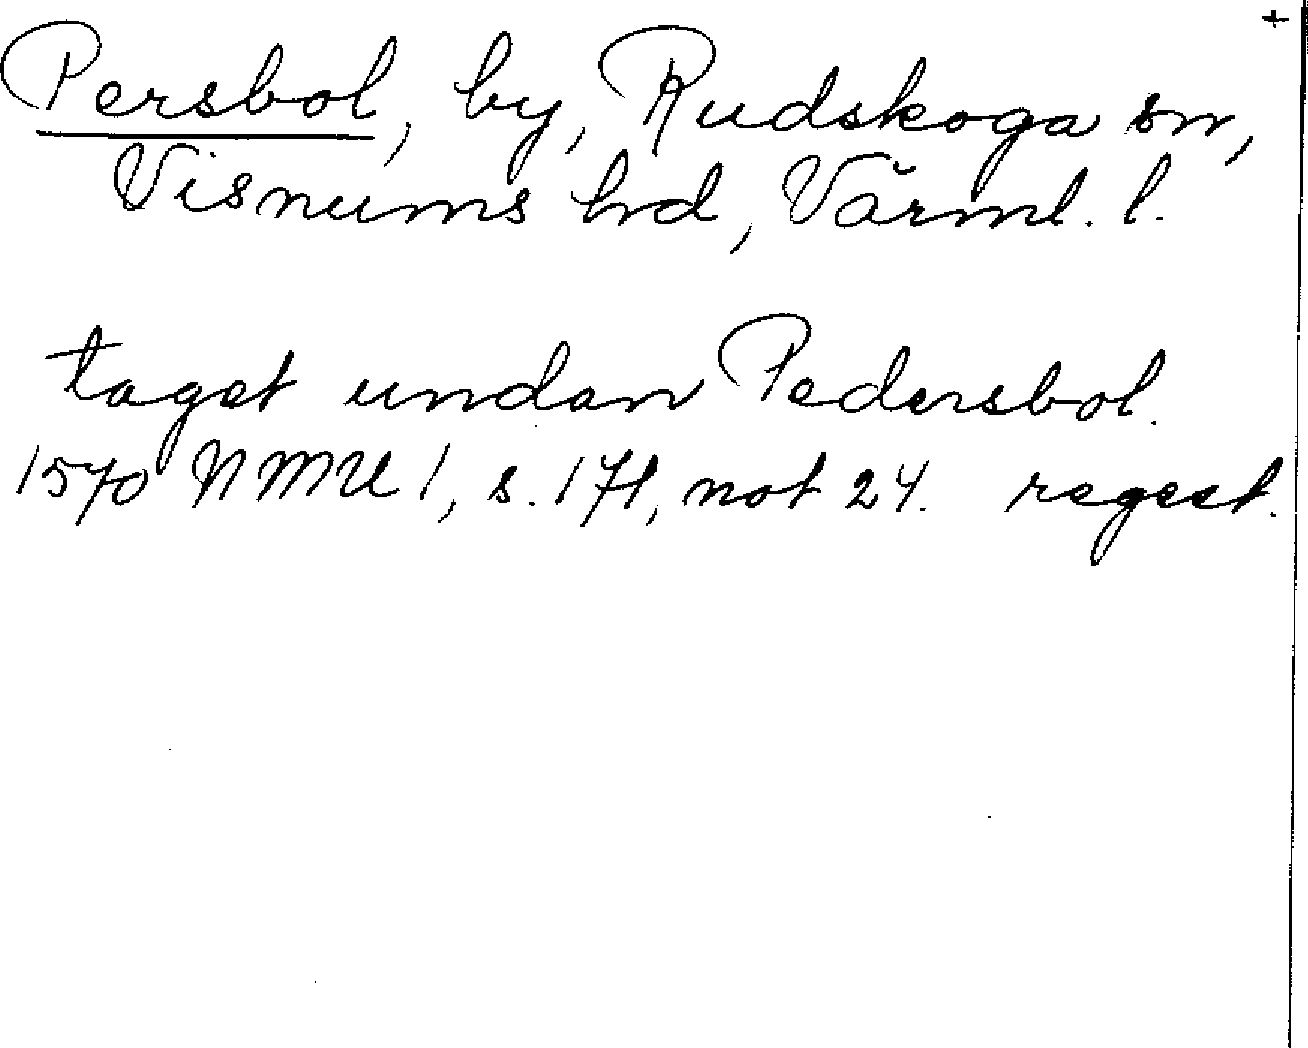 +
Persbol, by, Rudskoga sn,
Visnums hd, Värml. l.
taget undan Pedersbol.
1570 NMU 1, s. 171, not 24. regest.